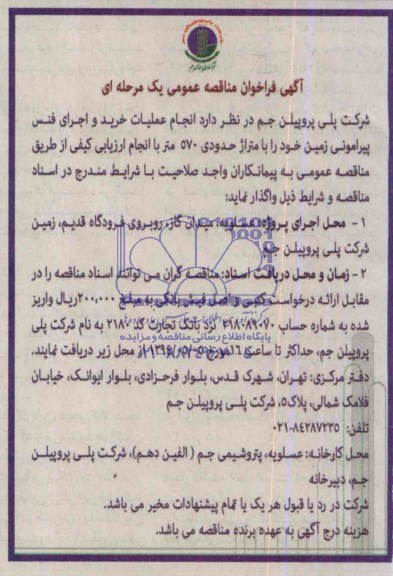 آگهی فراخوان مناقصه عمومی یک مرحله ای
شرکت پلی پروپیلن جم در نظر دارد انجام عملیات خرید و اجرای فنس
پیرامونی زمین خود را با متراژ حدودی ۵۷۰ متر با انجام ارزیابی کیفی از طریق
مناقصه عمومی به پیمانکاران واجد صلاحیت با شرایط مندرج در اسناد
مناقصه و شرایط ذیل واگذار نماید:
۱ - محل اجرای پروژه: عسلویه، میدان گاز، روبروی فرودگاه قدیم، زمین
شرکت پلی پروپیلن جم
۲ - زمان و محل دریافت اسناد: مناقصه گران می توانند اسناد مناقصه را در
مقابل ارائه درخواست کتبی و اصل فیش بانکی به مبلغ ۲۰۰,۰۰۰ ریال واریز
شده به شماره حساب نزد بانک تجارت کد ۲۱۸۰ به نام شرکت پلی
پایگاه اطلاع رسانی مناقصه و مزایده
پروپیلن جم، حداکثر تا ساعت ۱۶ مورخ از محل زیر دریافت نمایند.
دفتر مرکزی: تهران، شهرک قدس، بلوار فرحزادی، بلوار ایوانک، خیابان
فلامک شمالی، پلاک ۵، شرکت پلی پروپیلن جم
تلفن: ۰۲۱-۸۴۲۸۷۲۳۵
محل کارخانه: عسلویه، پتروشیمی جم ( الفین دهم)، شرکت پلی پروپیلن
جم، دبیرخانه
شرکت در رد یا قبول هر یک یا تمام پیشنهادات مخیر می باشد.
هزینه درج آگهی به عهده برنده مناقصه می باشد.